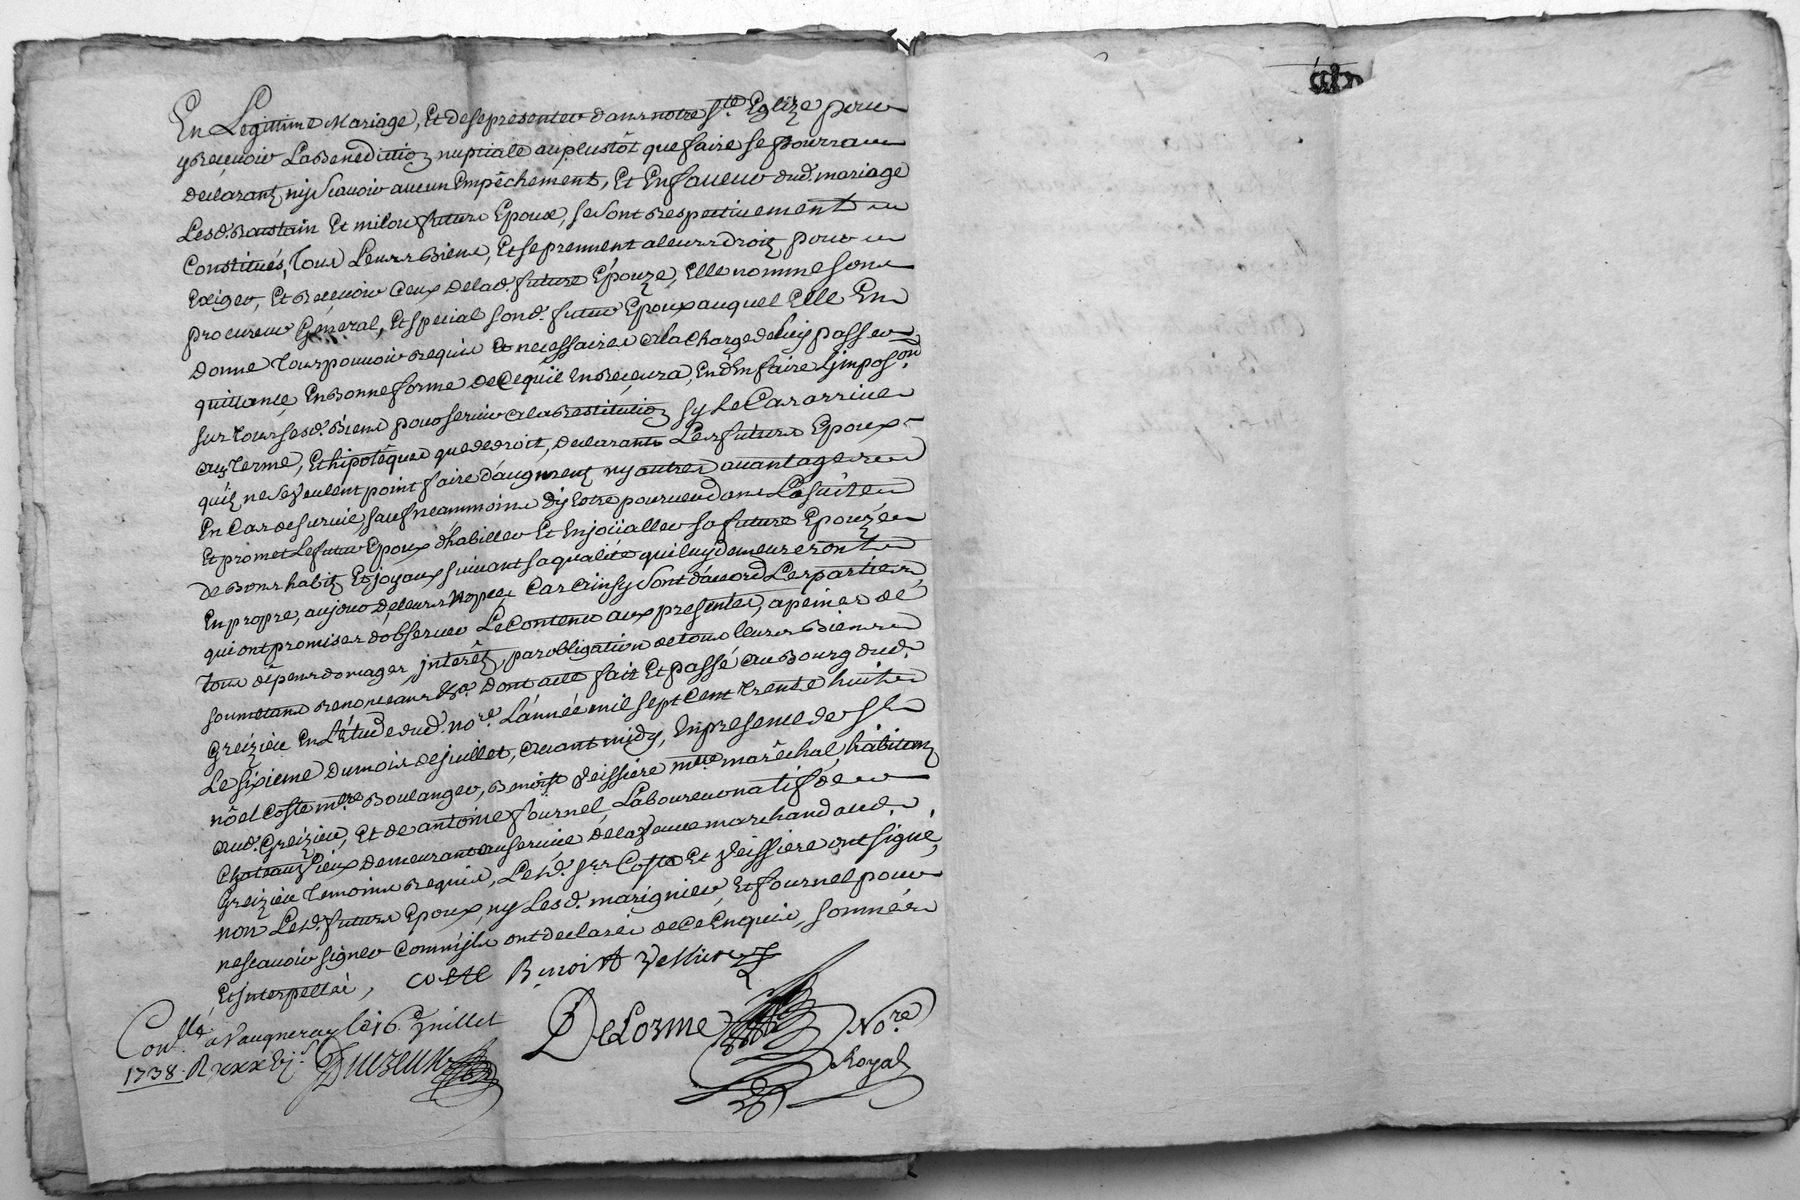 En Legittime Mariage, Et de se presenter dans notre Ste. Eglize pour
y Recevoir La Benediction nuptiale au plustôt que faire se pourra
declarants ny Scavoir aucun Empêchement, Et En faveur dud. mariage
Lesd. Bastain Et milou futurs Epoux, se sont Respectivement
Constitués, Tous Leurs Biens, Et se prennent a leurs droits pour
Exiger, Et Recevoir Ceux de lad. future Epouze, Elle nomme son
procureur General, Et special sond. futur Epoux auquel Elle En
donne Tous pouvoir requis Et necessaires a la Charge de luy passer
quittance En Bonne forme de Ce qu'il En Recevra, Et d'En faire L'imposon.
sur Tous sesd. Biens pour servir a la Restitution sy Le Cas arrive
aux Terme, Et hipotêques que de droit, declarants Les futurs Epoux
qu'ils ne Se Veulent point faire d'augment ny autres avantages
En Cas de survie, sauf neammoins d'y Estre pourveu dans La suite
Et promet Le futur Epoux d'habiller Et Enjoüaller sa future Epouze
de Bons habits Et joyaux suivant sa qualité qui luy demeureront
En propre, au jour de leurs Nopces Car ainsy Sont d'accord Les parties
qui ont promises d'observer Le Contenu aux presentes, a peines de
Tous dêpens domages jnterêts, par obligation de tous leurs Biens
soumetans Renonceans &a. Dont acte fait Et passé au Bourg dud.
Greizieu En L'étude dud. nore. L'année mil sept Cent Trente huit
Le sixieme du mois de juillet, avant midy, En presence de sr.
nöel Coste mtre. Boulanger, Benoist Veissiere mtre marêchal habitants
aud. Greizieu, Et de antoine fournel, Laboureur natif de
Chateauvieux demeurant au service de la Veuve marchand aud.
Greizieu Temoins Requis, Lesd. srs. Coste Et Veissiere ont signé,
non Lesd. futurs Epoux, ny Lesd. marignier, Et fournel pour
ne scavoir signer Comm'ils ont declarés de Ce Enquis, sommés
Et jnterpellés,
coste Benoist Vessiere
Conllé. a Vaugneray le 16 juillet
1738.
DeLorme Nore.
Royal